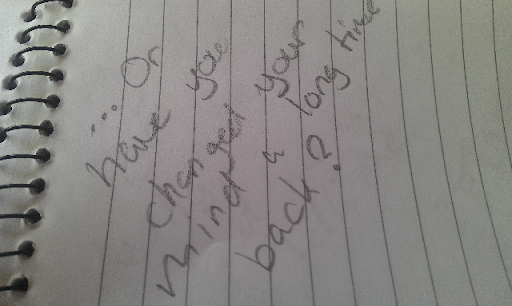 ... Or
have you
changed your
mind a long time
back?